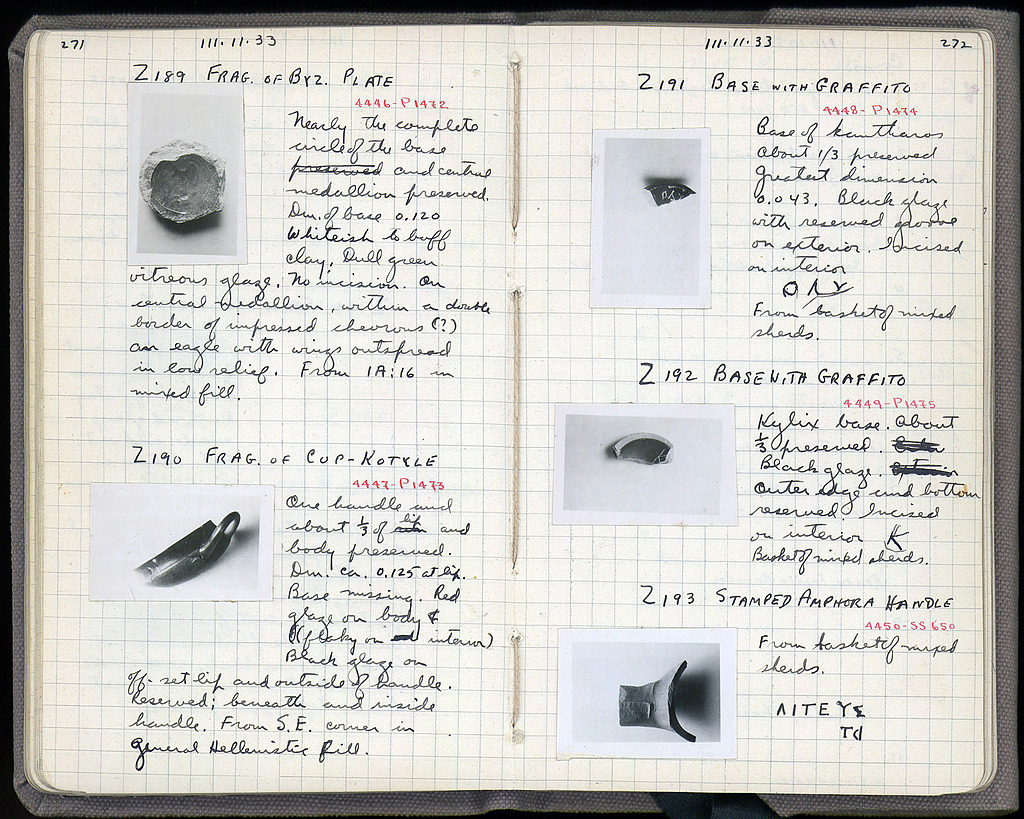 271
111·11·33
Z189 FRAG. OF BYZ. PLATE
4446-P1472
Nearly the complete
circle of the base
preserved and central
medallion preserved.
Dm. of base 0.120
Whiteish to buff
clay. Dull green
vitreous glaze. No incision. On
central medallion, within a double
border of impressed chevrons (?)
an eagle with wings outspread
in low relief. From 1A:16 in
mixed fill.
Z190 FRAG. OF CUP-KOTYLE
4447-P1473
One handle and
about 1/3 of lip and
body preserved.
Dm. ca. 0.125 at lip.
Base missing. Red
glaze on body &
(flaky on interior)
Black glaze on
off-set lip and outside of handle.
Reserved; beneath and inside
handle. From S.E. corner in
general Hellenistic fill.
111·11·33
272
Z191 BASE WITH GRAFFITO
4448-P1474
Base of kantharos
about 1/3 preserved
Greatest dimension
0.043. Black glaze
with reserved groove
on exterior. Incised
on interior
From basket of mixed
sherds.
Z192 BASE WITH GRAFFITO
4449-P1475
Kylix base. About
1/3 preserved.
Black glaze.
Outer edge and bottom
reserved. Incised
on interior K
Basket of mixed sherds.
Z193 STAMPED AMPHORA HANDLE
4450-SS650
From basket of mixed
sherds.